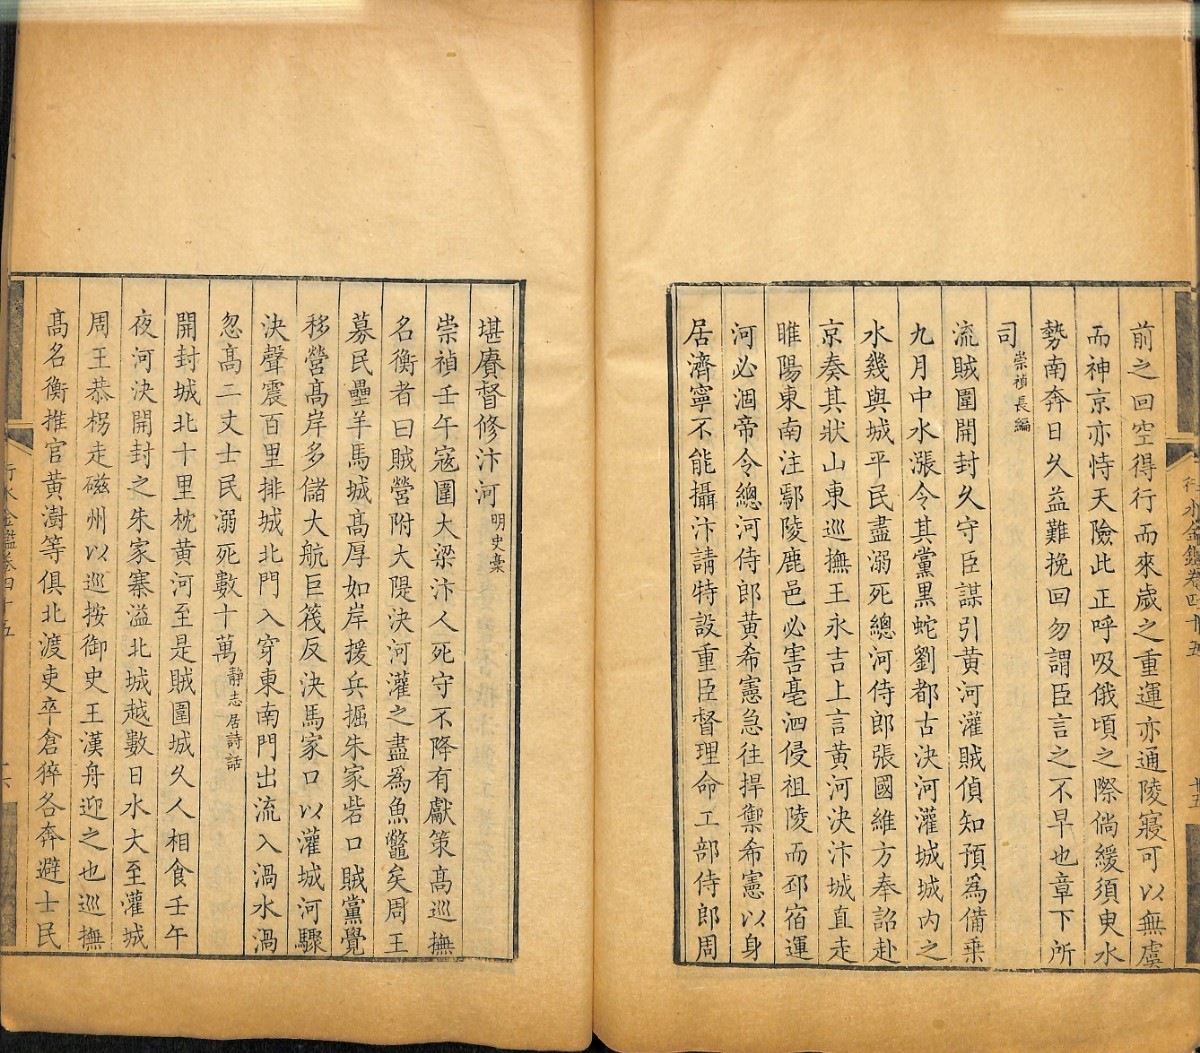 前之回空得行而來歲之重運亦通陵寢可以無虞
而神京亦恃天險此正呼吸俄頃之際倘緩須臾水
勢南奔日久益難挽回勿謂臣言之不早也章下所
司崇禎長編
流賊圍開封久守臣謀引黃河灌賊偵知預爲備乗
九月中水漲令其黨黑蛇劉都古決河灌城城內之
水幾與城平民盡溺死總河侍郎張國維方奉詔赴
京奏其狀山東巡撫王永吉上言黃河決汴城直走
睢陽東南注鄢陵鹿邑必害亳泗侵祖陵而邳宿運
河必涸帝令總河侍郎黃希憲急往捍禦希憲以身
居濟寧不能攝汴請特設重臣督理命工部侍郎周
堪賡督修汴河明史稾
崇禎壬午寇圍大梁汴人死守不降有獻策髙巡撫
名衡者曰賊營附大隄決河灌之盡爲魚鼈矣周王
募民壘羊馬城髙厚如岸援兵掘朱家砦口賊黨覺
移營髙岸多儲大航巨筏反決馬家口以灌城河驟
決聲震百里排城北門入穿東南門出流入渦水渦
忽髙二丈士民溺死數十萬静志居詩話
開封城北十里枕黃河至是賊圍城久人相食壬午
夜河決開封之朱家寨溢北城越數日水大至灌城
周王恭枴走磁州以巡按御史王漢舟迎之也巡撫
髙名衡推官黃澍等俱北渡吏卒倉猝各奔避士民
行水金鑑卷四十五
行水金鑑卷四十五